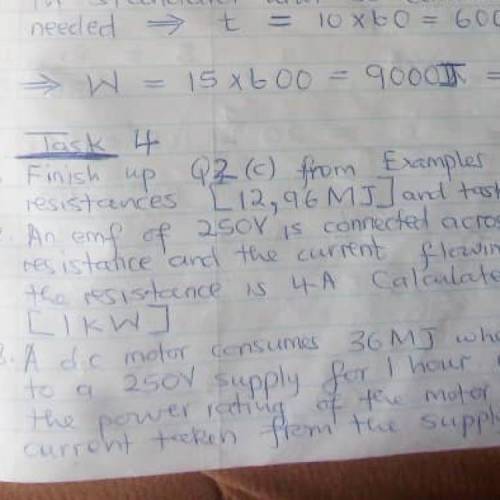 needed ⇒ t = 10 x 60 = 600
⇒ W = 15 x 600 = 9000J =
Task 4
Finish up Q2 (c) from Examples
resistances [12,96 MJ] and task
An emf of 250V is connected across
resistance and the current flowing
the resistance is 4A Calculate
[1 KW]
3. A d.c motor consumes 36 MJ whe
to a 250V supply for 1 hour
the power rating of the motor
current taken from the supply